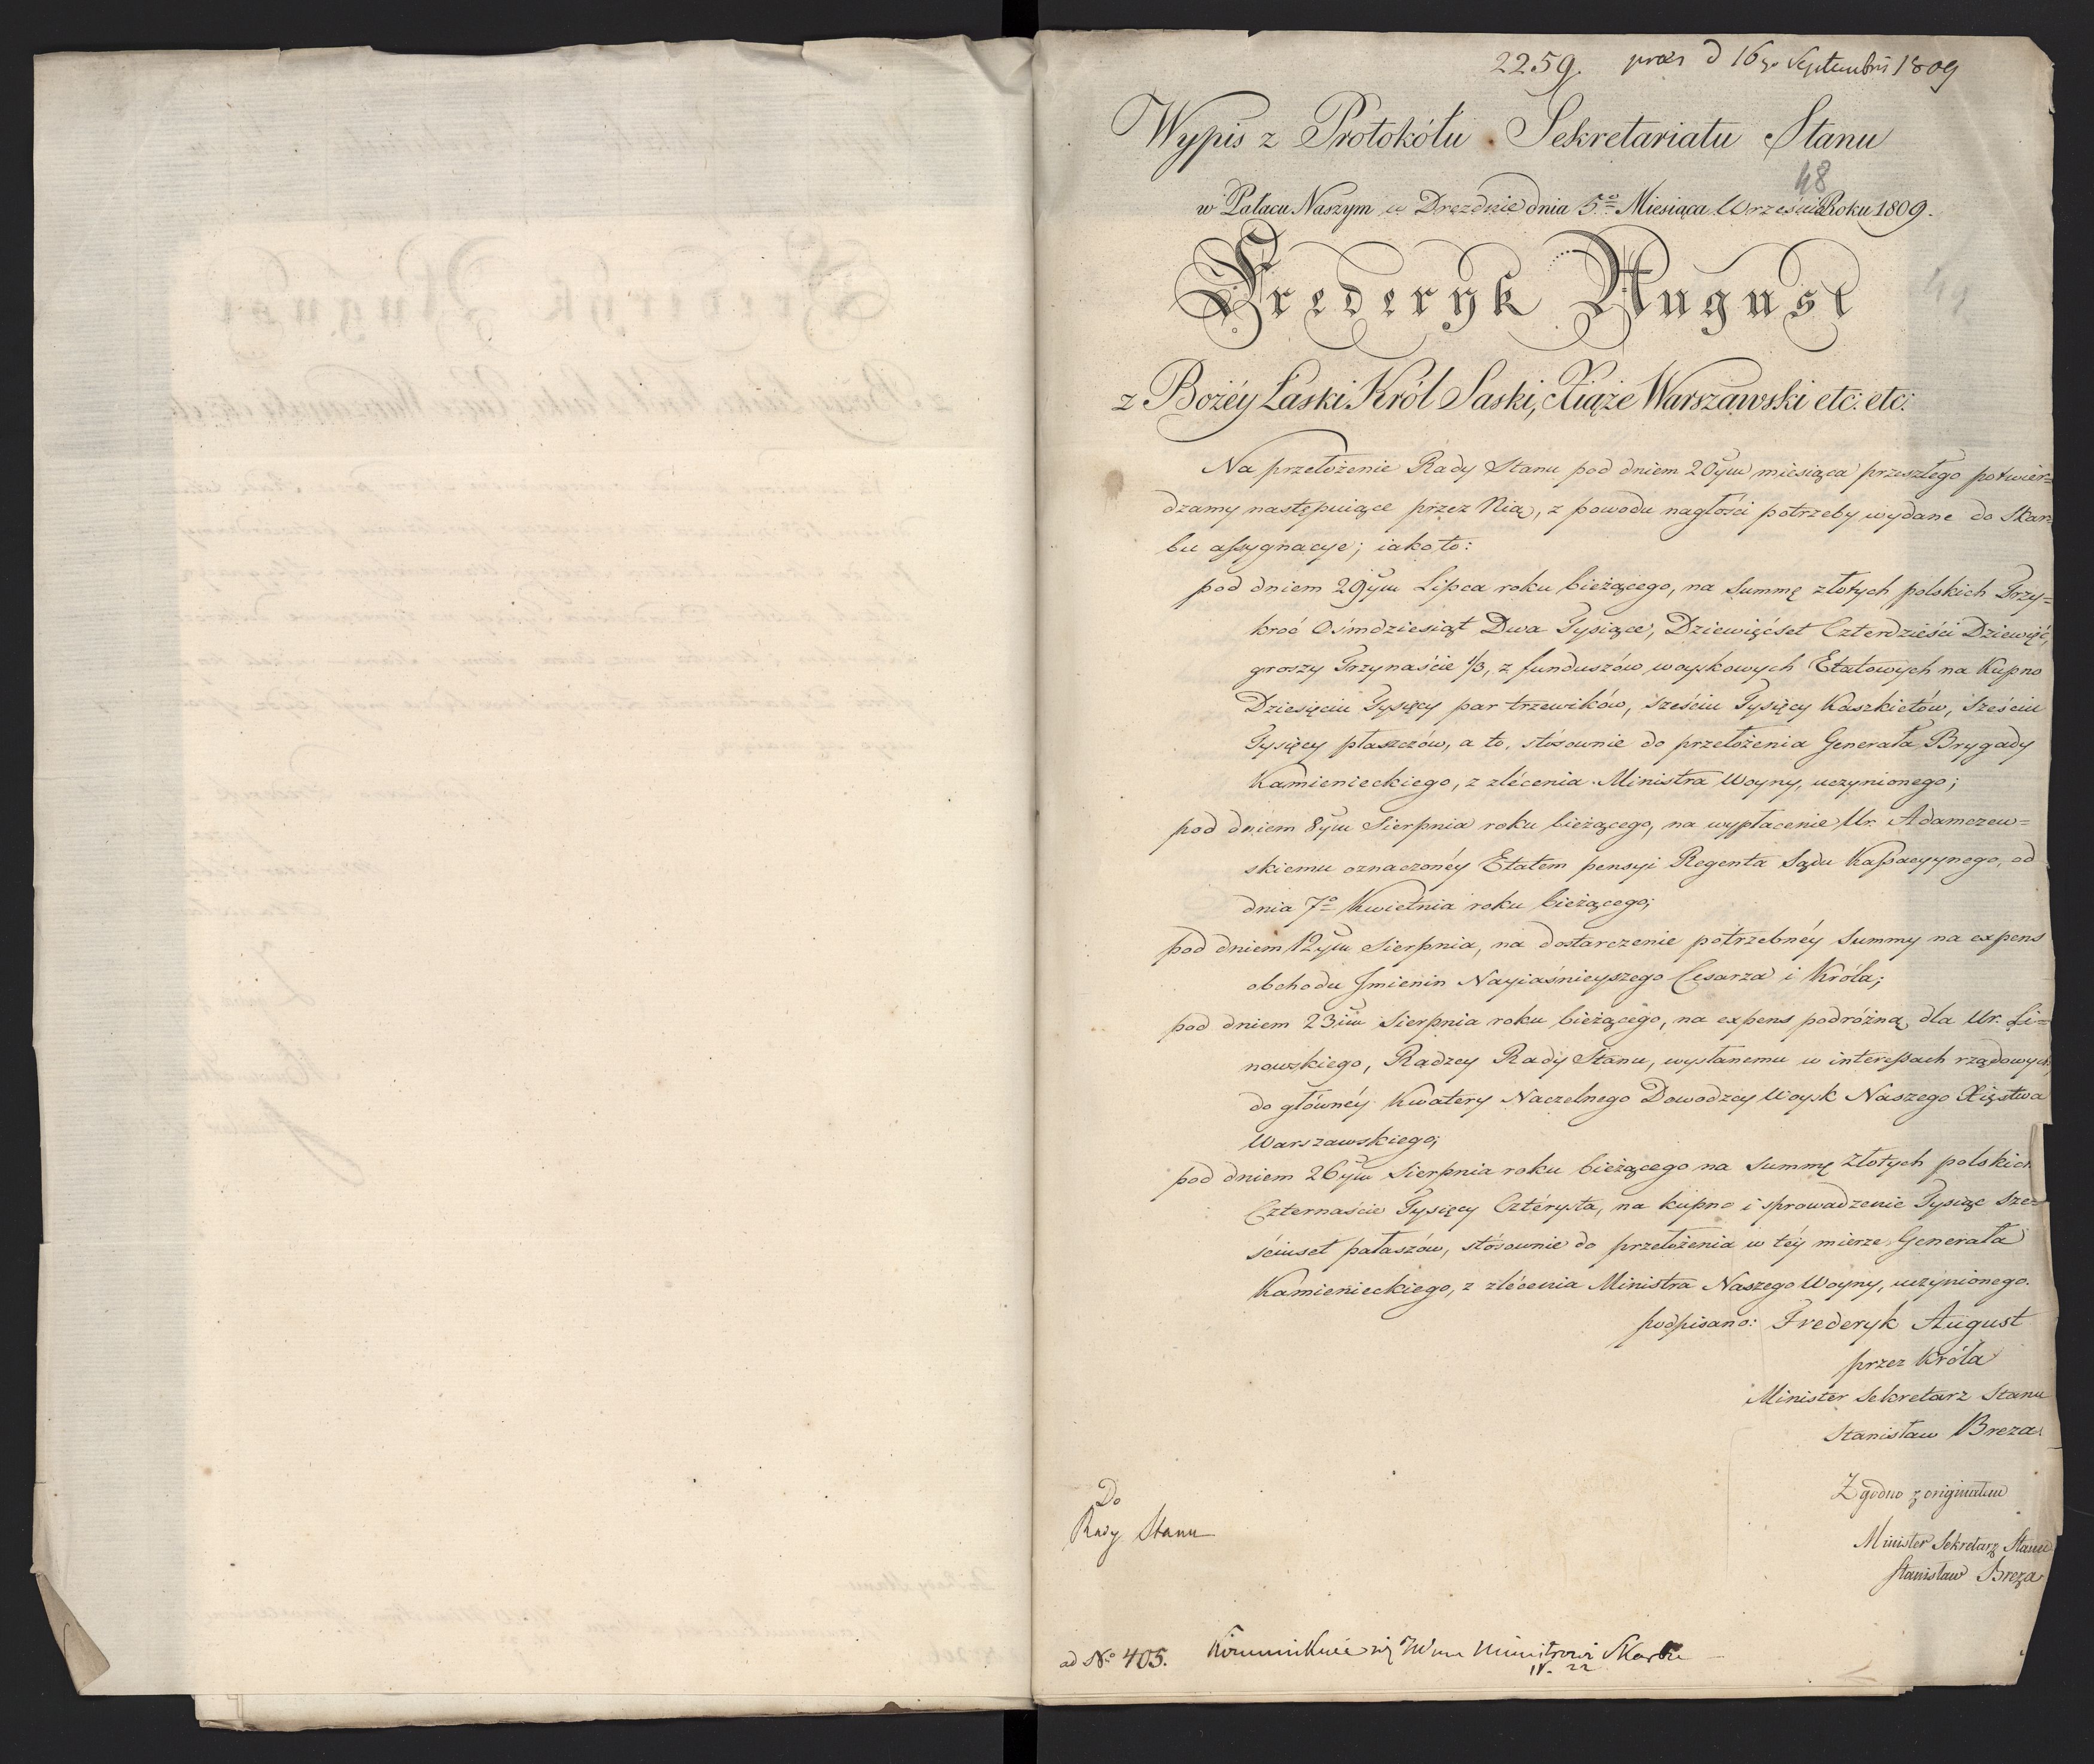 2259. præs d 16go Septembris 1809
Wypis z Protokółu Sekretariatu Stanu
48
w Pałacu Naszym w Dreznie dnia 5o Miesiąca Września Roku 1809.
Frederyk August
z Bożéy Łaski Król Saski, Xiąże Warszawski etc: etc:
Na przełożenie Rady Stanu pod dniem 20ym miesiąca przeszłego potwier=
dzamy następuiące przez Nią, z powodu nagłości potrzeby wydane do Skar=
bu assygnacye; iako to:
pod dniem 29ym Lipca roku bieżącego, na Summę złotych polskich Trzy=
kroć Ośmdziesiąt Dwa Tysiące, Dziewięćset Czterdzieści Dziewięć,
groszy Trzynaście 1/3, z funduszów woyskowych Etatowych na Kupno
Dziesięciu Tysięcy par trzewików, sześciu Tysięcy Kaszkietów, Sześciu
Tysięcy płaszczów, a to, stósownie do przełożenia Generała Brygady
Kamienieckiego, z zlécenia Ministra Woyny, uczynionego;
pod dniem 8ym Sierpnia roku bieżącego, na wypłacenie Ur. Adamczew=
skiemu oznaczonéy Etatem pensyi Regenta Sądu Kassacyynego, od
dnia 7o Kwietnia roku bieżącego;
pod dniem 12ym Sierpnia, na dostarczenie potrzebnéy Summy na expens
obchodu Jmienin Nayiaśnieyszego Cesarza i Króla;
pod dniem 23im Sierpnia roku bieżącego, na expens podróżną dla Ur. Li=
nowskiego, Radzcy Rady Stanu, wysłanemu w interessach rządowych,
do głównéy Kwatery Naczelnego Dowodzcy Woysk Naszego Xięstwa
Warszawskiego;
pod dniem 26ym Sierpnia roku bieżącego na Summę Złotych polskich
Czternaście Tysięcy Cztérysta, na kupno i sprowadzenie Tysiąc Sze=
śćiuset pałaszów, stósownie do przełożenia w téy mierze Generała
Kamienieckiego, z zlécenia Ministra Naszego Woyny, uczynionego.
podpisano: Frederyk August
przez Króla
Minister Sekretarz Stanu
Stanisław Breza
Zgodno z originałem
Minister Sekretarz Stanu
Stanisław Breza
Do
Rady Stanu
ad No 405. Kommunikuie się JWmu Ministrowi Skarbu
22